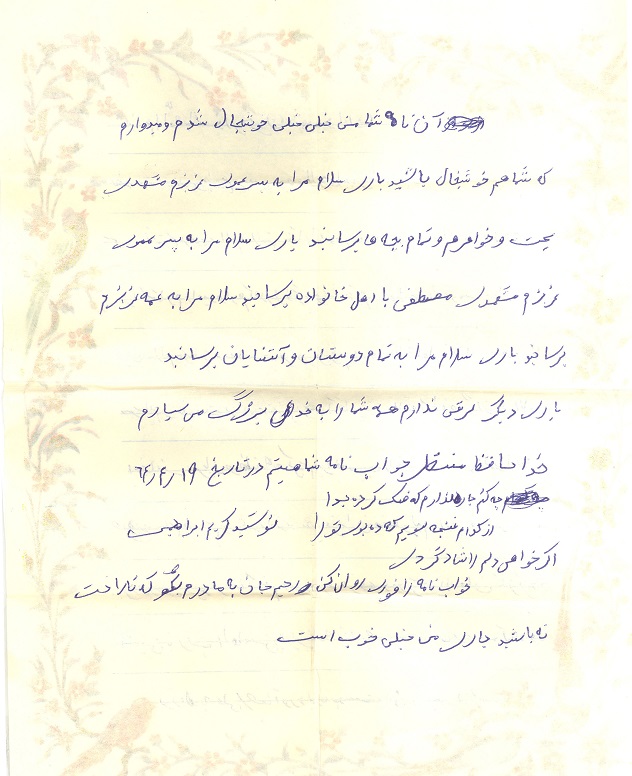 آن نامه شما من خیلی خیلی خوشحال شدم و میدوارم
که شما هم خوشحال باشید باری سلام مرا به پسر عموی عزیزم مشهدی
یحیت و خواهرم و تمام بچه ها برسانید باری سلام مرا به پسر عموی
عزیزم مشهدی مصطفی با اهل خانواده برسانید سلام مرا به عمه عزیزم
برسانید باری سلام مرا به تمام دوستان و آشنایان برسانید
باری دیگر عرضی ندارم همه شما را به خدای بزرگ می سپارم
خدا حافظ منتظر جواب نامه شما هستم در تاریخ ۶۴/۴/۱۹
چه کنم چاره ندارم که فلک کرده جدا
از کدام غنچه بپرسم که دهد بوی تو را نویسید کریم ابراهیمی
اگر خواهی دلم را شاد گردی
جواب نامه را فوری روان کن رحیم جان به مادرم بگو که ناراحت
نه باشید جای من خیلی خوب است